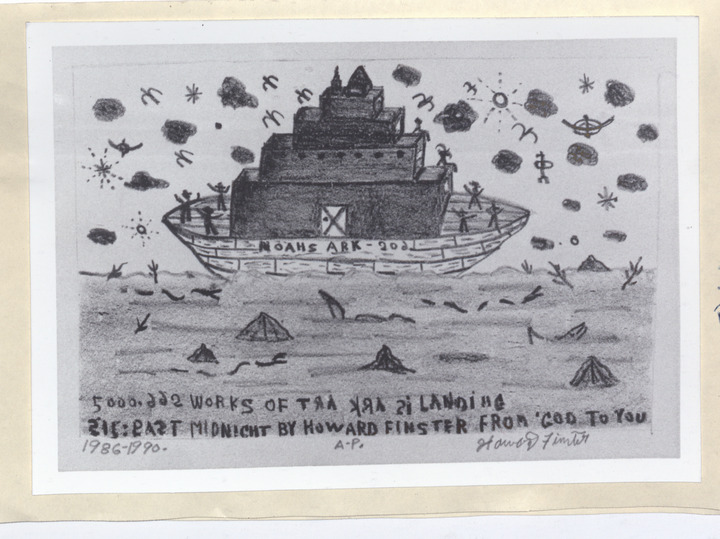 NOAHS ARK -
WORKS OF TЯA ꓘЯA iS LANDING
PAST MIDNIGHT BY HOWARD FINSTER FROM 'GOD TO YOU
1986-1990. A-P. Howard Finster